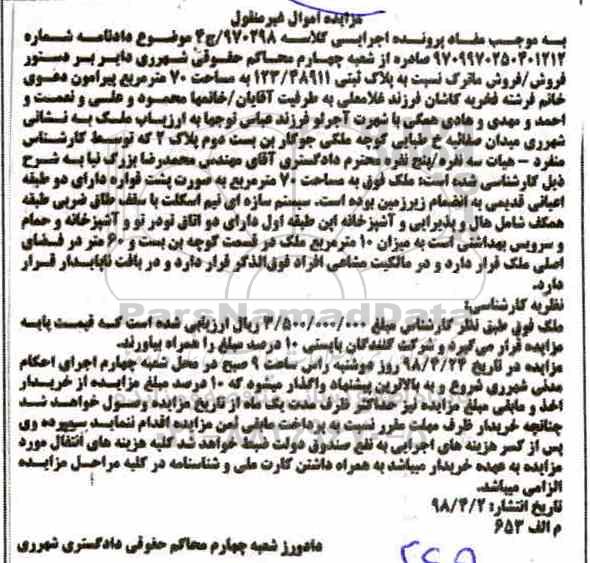 مزایده اموال غیرمنقول
به موجب مفاد پرونده اجرایی کلاسه ۹۷۰۲۹۸/ج۴ موضوع دادنامه شماره
۹۷۰۹۹۷۰۲۵۰۴۰۱۲۱۲ صادره از شعبه چهارم محاکم حقوقی شهرری دایر بر دستور
فروش/فروش ماترک نسبت به پلاک ثبتی ۱۲۳/۴۸۹۱۱ به مساحت ۷۰ مترمربع پیرامون دعوی
خانم فرشته فخریه کاشان فرزند غلامعلی به طرفیت آقایان/خانمها محمود و علی و نعمت و
احمد و مهدی و هادی همگی با شهرت آجرلو فرزند عباس توجها به ارزیاب ملک به نشانی
شهرری میدان صفائیه خ طبایی کوچه ملکی جوکار بن بست دوم پلاک ۲ که توسط کارشناس
منفرد – هیات سه نفره/پنج نفره محترم دادگستری آقای مهندس محمدرضا بزرگ نیا به شرح
ذیل کارشناسی شده است: ملک فوق به مساحت ۷۰ مترمربع به صورت پشت قواره دارای دو طبقه
اعیانی قدیمی به انضمام زیرزمین بوده است. سیستم سازه ای نیم اسکلت با سقف طاق ضربی طبقه
همکف شامل هال و پذیرایی و آشپزخانه این طبقه اول دارای دو اتاق تودرتو و آشپزخانه و حمام
و سرویس بهداشتی است به میزان ۱۰ مترمربع ملک در قسمت کوچه بن بست و ۶۰ متر در فضای
اصلی ملک قرار دارد و در مالکیت مشاعی افراد فوق‌الذکر قرار دارد و در بافت ناپایدار قرار
دارد.
نظریه کارشناسی:
ملک فوق طبق نظر کارشناس مبلغ ۳/۵۰۰/۰۰۰/۰۰۰ ریال ارزیابی شده است که قیمت پایه
مزایده قرار می‌گیرد و شرکت کنندگان بایستی ۱۰ درصد مبلغ را همراه بیاورند.
مزایده در تاریخ ۹۸/۴/۲۴ روز دوشنبه راس ساعت ۹ صبح در محل شعبه چهارم اجرای احکام
مدنی شهرری شروع و به بالاترین پیشنهاد واگذار میشود که ۱۰ درصد مبلغ مزایده از خریدار
اخذ و مابقی مبلغ مزایده نیز حداکثر ظرف مدت یک ماه از تاریخ مزایده وصول خواهد شد
چنانچه خریدار ظرف مهلت مقرر نسبت به پرداخت مابقی ثمن مزایده اقدام ننماید سپرده وی
پس از کسر هزینه های اجرایی به نفع صندوق دولت ضبط خواهد شد کلیه هزینه های انتقال مورد
مزایده به عهده خریدار میباشد به همراه داشتن کارت ملی و شناسنامه در کلیه مراحل مزایده
الزامی میباشد.
تاریخ انتشار: ۹۸/۴/۲
م الف ۶۵۳
دادورز شعبه چهارم محاکم حقوقی دادگستری شهرری
ParsNamadData